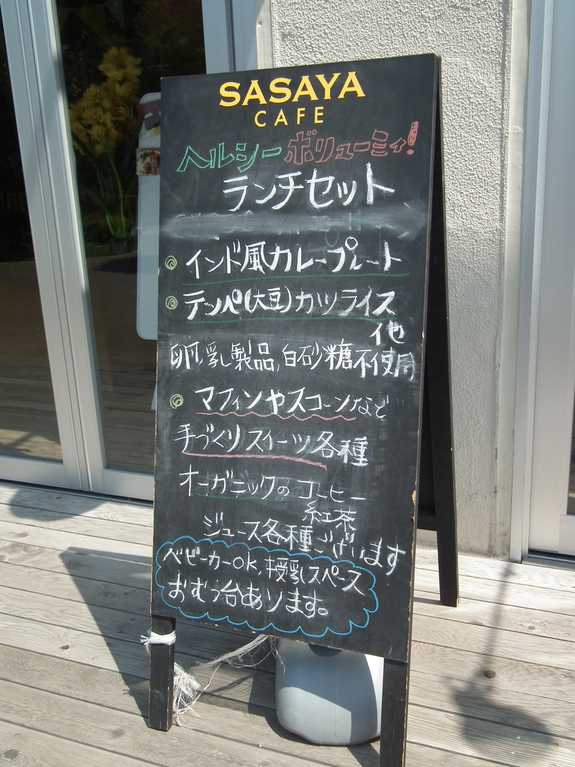 SASAYA
CAFE
ヘルシーボリューミィ!
ランチセット
インド風カレープレート
テンペ(大豆)カツライス
他
卵,乳製品,白砂糖不使用
マフィンやスコーンなど
手づくりスイーツ各種
オーガニックのコーヒー
紅茶
ジュース各種ございます
ベビーカーOK,授乳スペース
おむつ台あります。